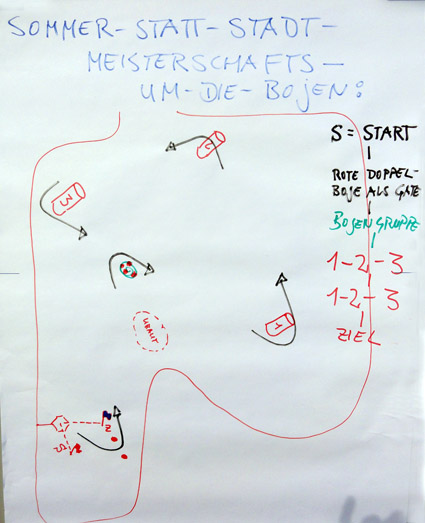 SOMMER-STATT-STADT-
MEISTERSCHAFTS-
UM-DIE-BOJEN:
S = START
ROTE DOPPEL-
BOJE ALS GATE
BOJENGRUPPE
1-2-3
1-2-3
ZIEL
2
3
1
KRAUT
Z
S